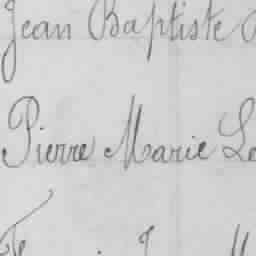 Jean Baptiste
Pierre Marie Le